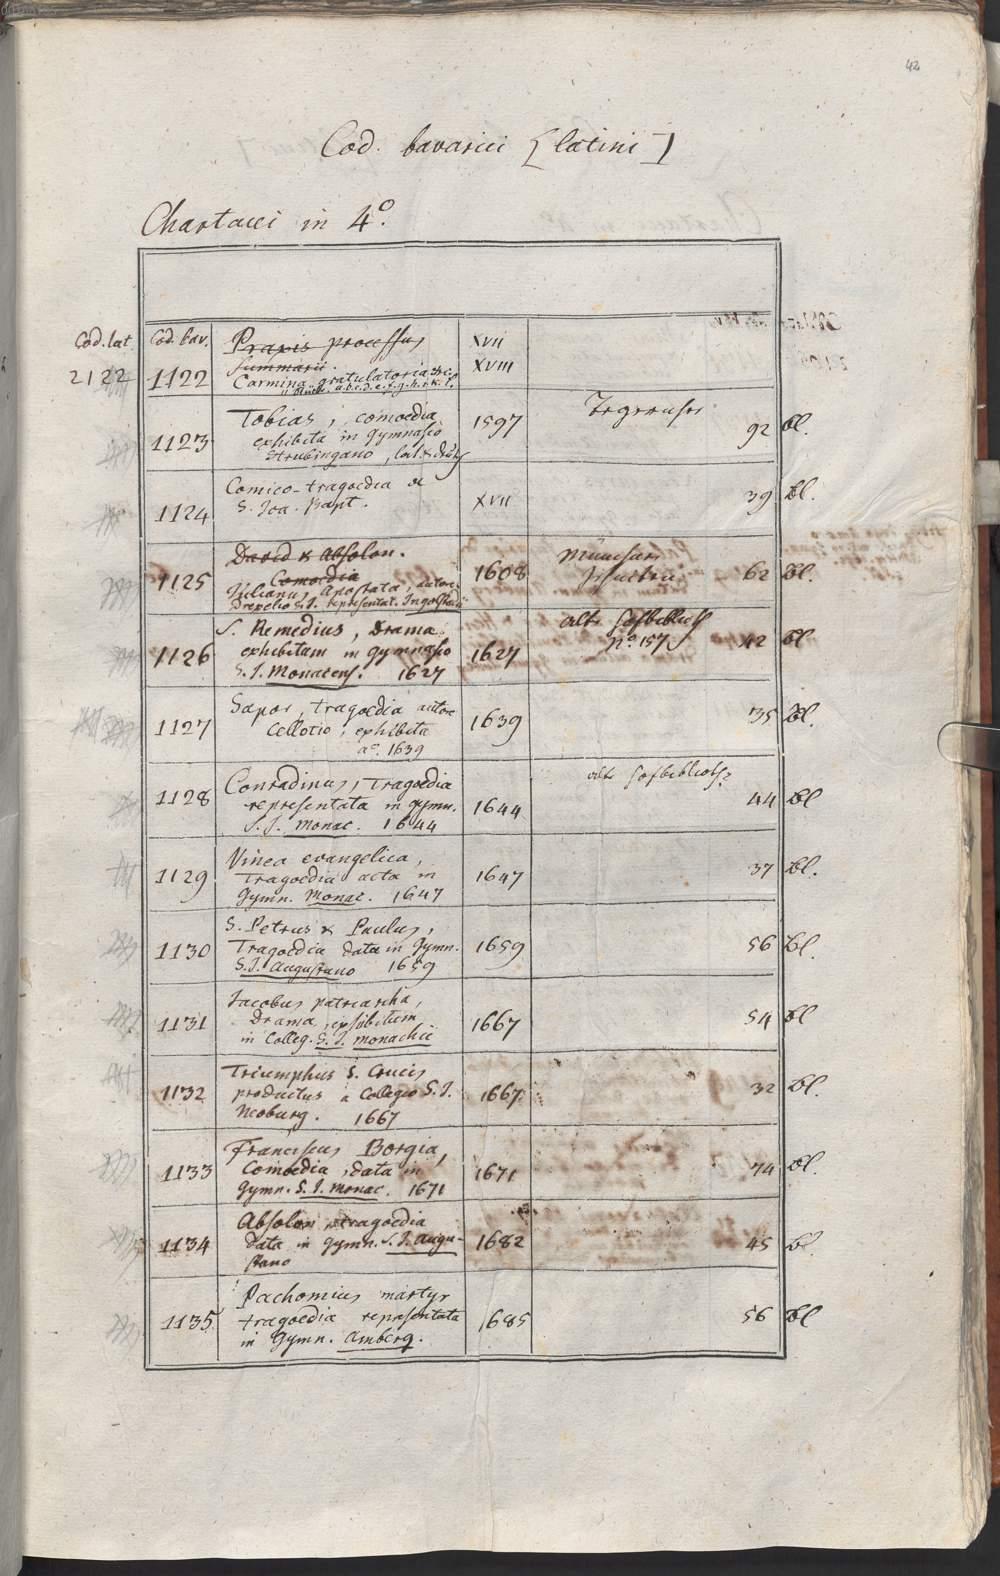 42
Cod. bavarici [latini]
Chartacei in 4°.
Cod. lat.
2122
Cod. bav.
1122
Praxis processus
Summarii.
Carmina gratulatoria etc.
a. b. c. d. e. f. g. h. i. k. l.
XVII
XVIII
1123
Tobias, comoedia
exhibita in Gymnasio
Strubingano, lat. &
1597
Tegernsee
92 Bl.
1124
Comico-tragoedia de
S. Joa. Bapt.
XVII
39 Bl.
1125
David & Absolon.
Comoedia
Julianus Apostata, autore
Drexelio S.J. repraesentat. Ingolstadii
1608
62 Bl.
1126
S. Remedius, Drama
exhibitum in gymnasio
S.J. Monacens. 1627
1627
alte Hofbiblioth
No. 157
42 Bl
1127
Sapor, tragoedia autore
Cellotio, exhibita
a°. 1639
1639
35 Bl.
1128
Conradinus, Tragoedia
repraesentata in gymn.
S.J. Monac. 1644
1644
alte Hofbiblioth.
44 Bl
1129
Vinea evangelica,
Tragoedia acta in
Gymn. Monac. 1647
1647
37 Bl.
1130
S. Petrus & Paulus,
Tragoedia data in Gymn.
S.J. Augustano 1659
1659
56 Bl.
1131
Jacobus patriarcha,
Drama, exhibitum
in Colleg. S.J. Monachii
1667
54 Bl
1132
Triumphus S. Crucis
productus a Collegio S.J.
Neoburg. 1667
1667
32 Bl.
1133
Franciscus Borgia,
Comoedia, data in
Gymn. S.J. Monac. 1671
1671
74 Bl.
1134
Absolon, tragoedia
data in Gymn. S.J. Augu-
stano
1682
45 Bl.
1135
Pachomius martyr
tragoedia repraesentata
in Gymn. Amberg.
1685
56 Bl